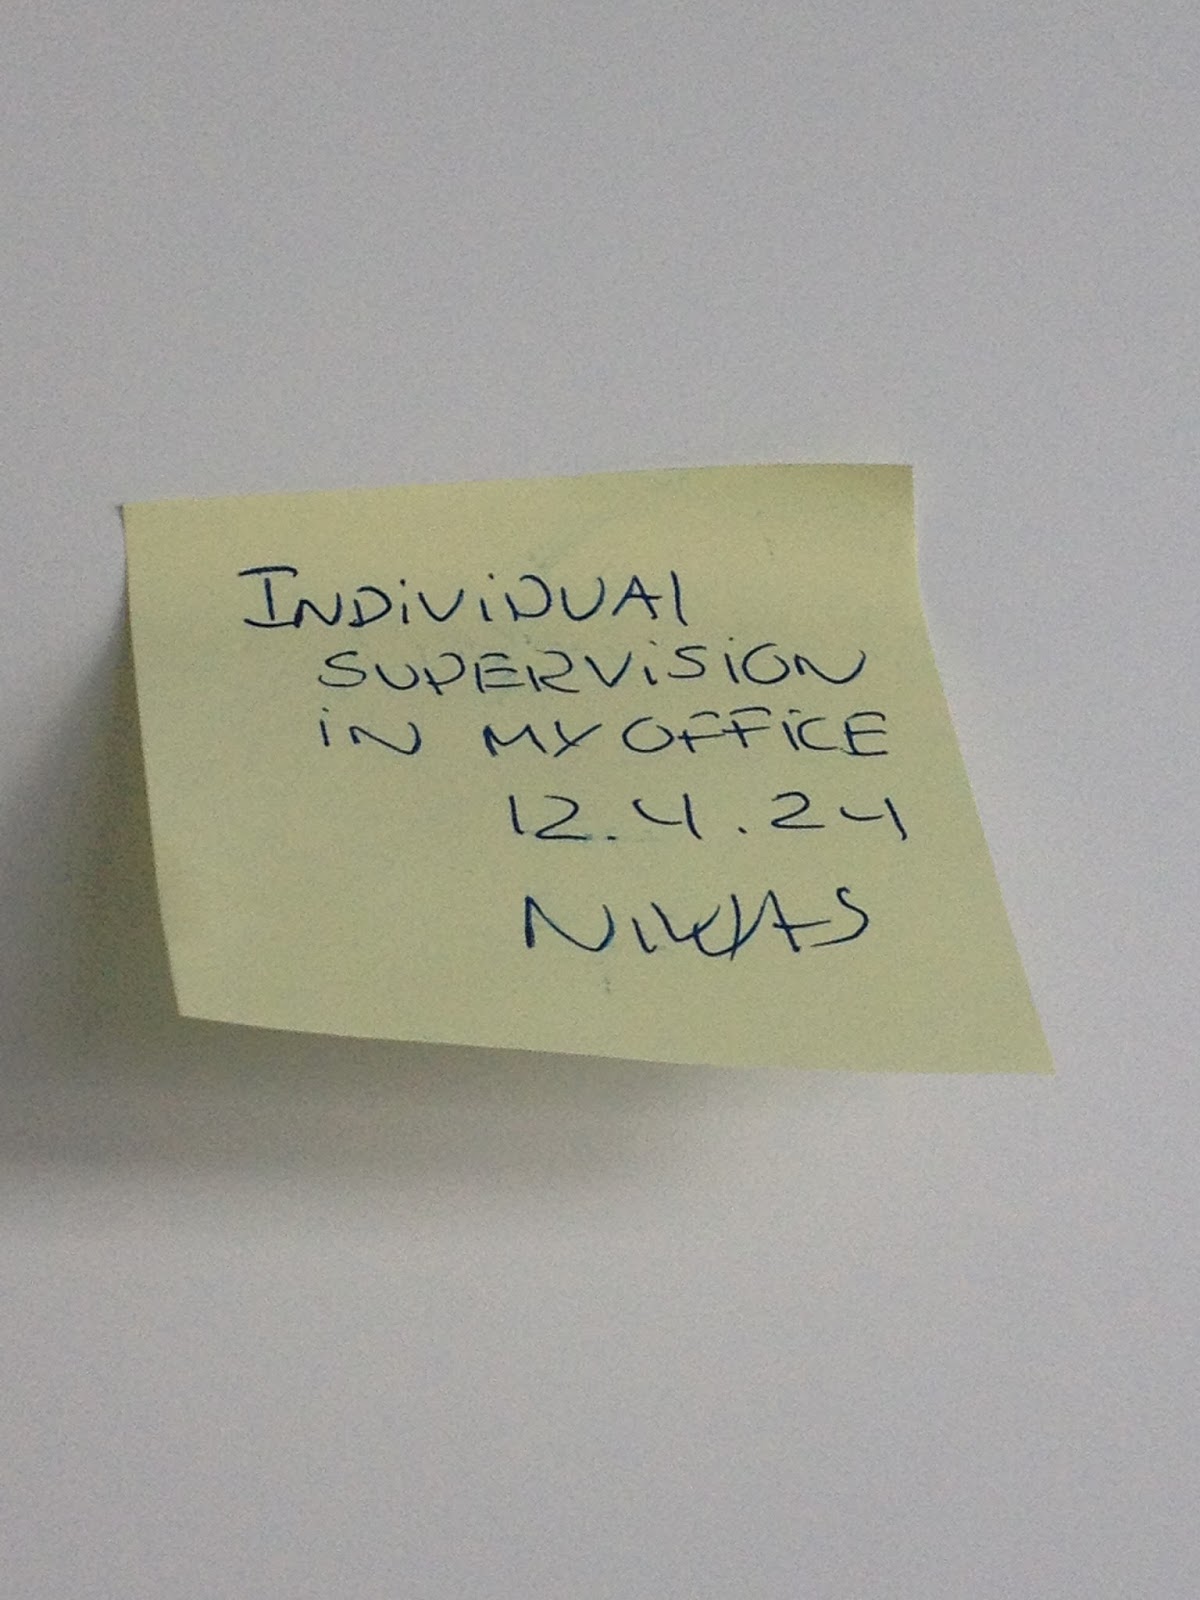 INDiViDUAl
SUPERViSiON
iN MY OFFiCE
12.4.24